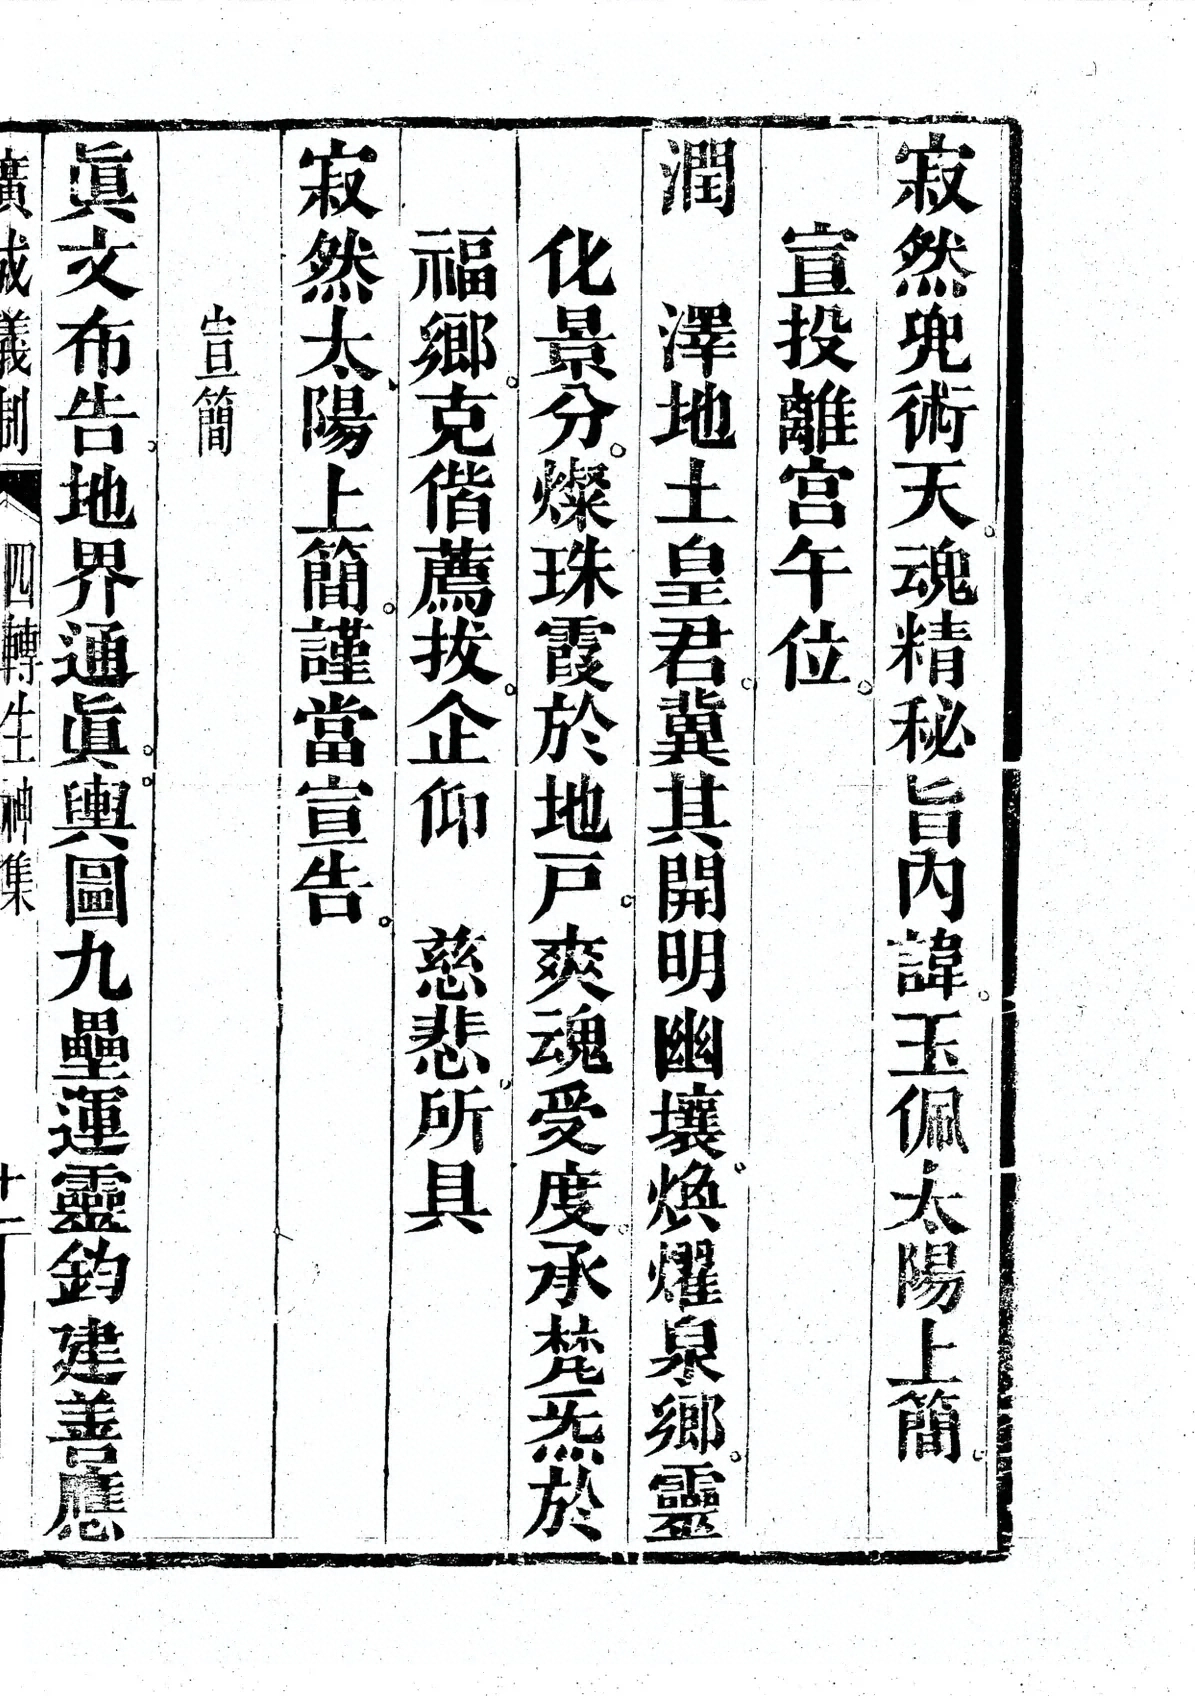 寂然兜術天。魂精秘旨內諱。玉佩太陽上簡。
宣投離宮午位。
潤　澤地土皇君。冀其開明幽壤。煥燿泉鄉。靈
化景分。燦珠霞於地戶。爽魂受度。承梵炁於
福鄉。克偕薦拔。企仰　慈悲。所具
寂然太陽上簡。謹當宣告。
宣簡
眞文布告。地界通眞。輿圖九壘運靈鈞建善應
廣成儀制　四轉生神集　十二